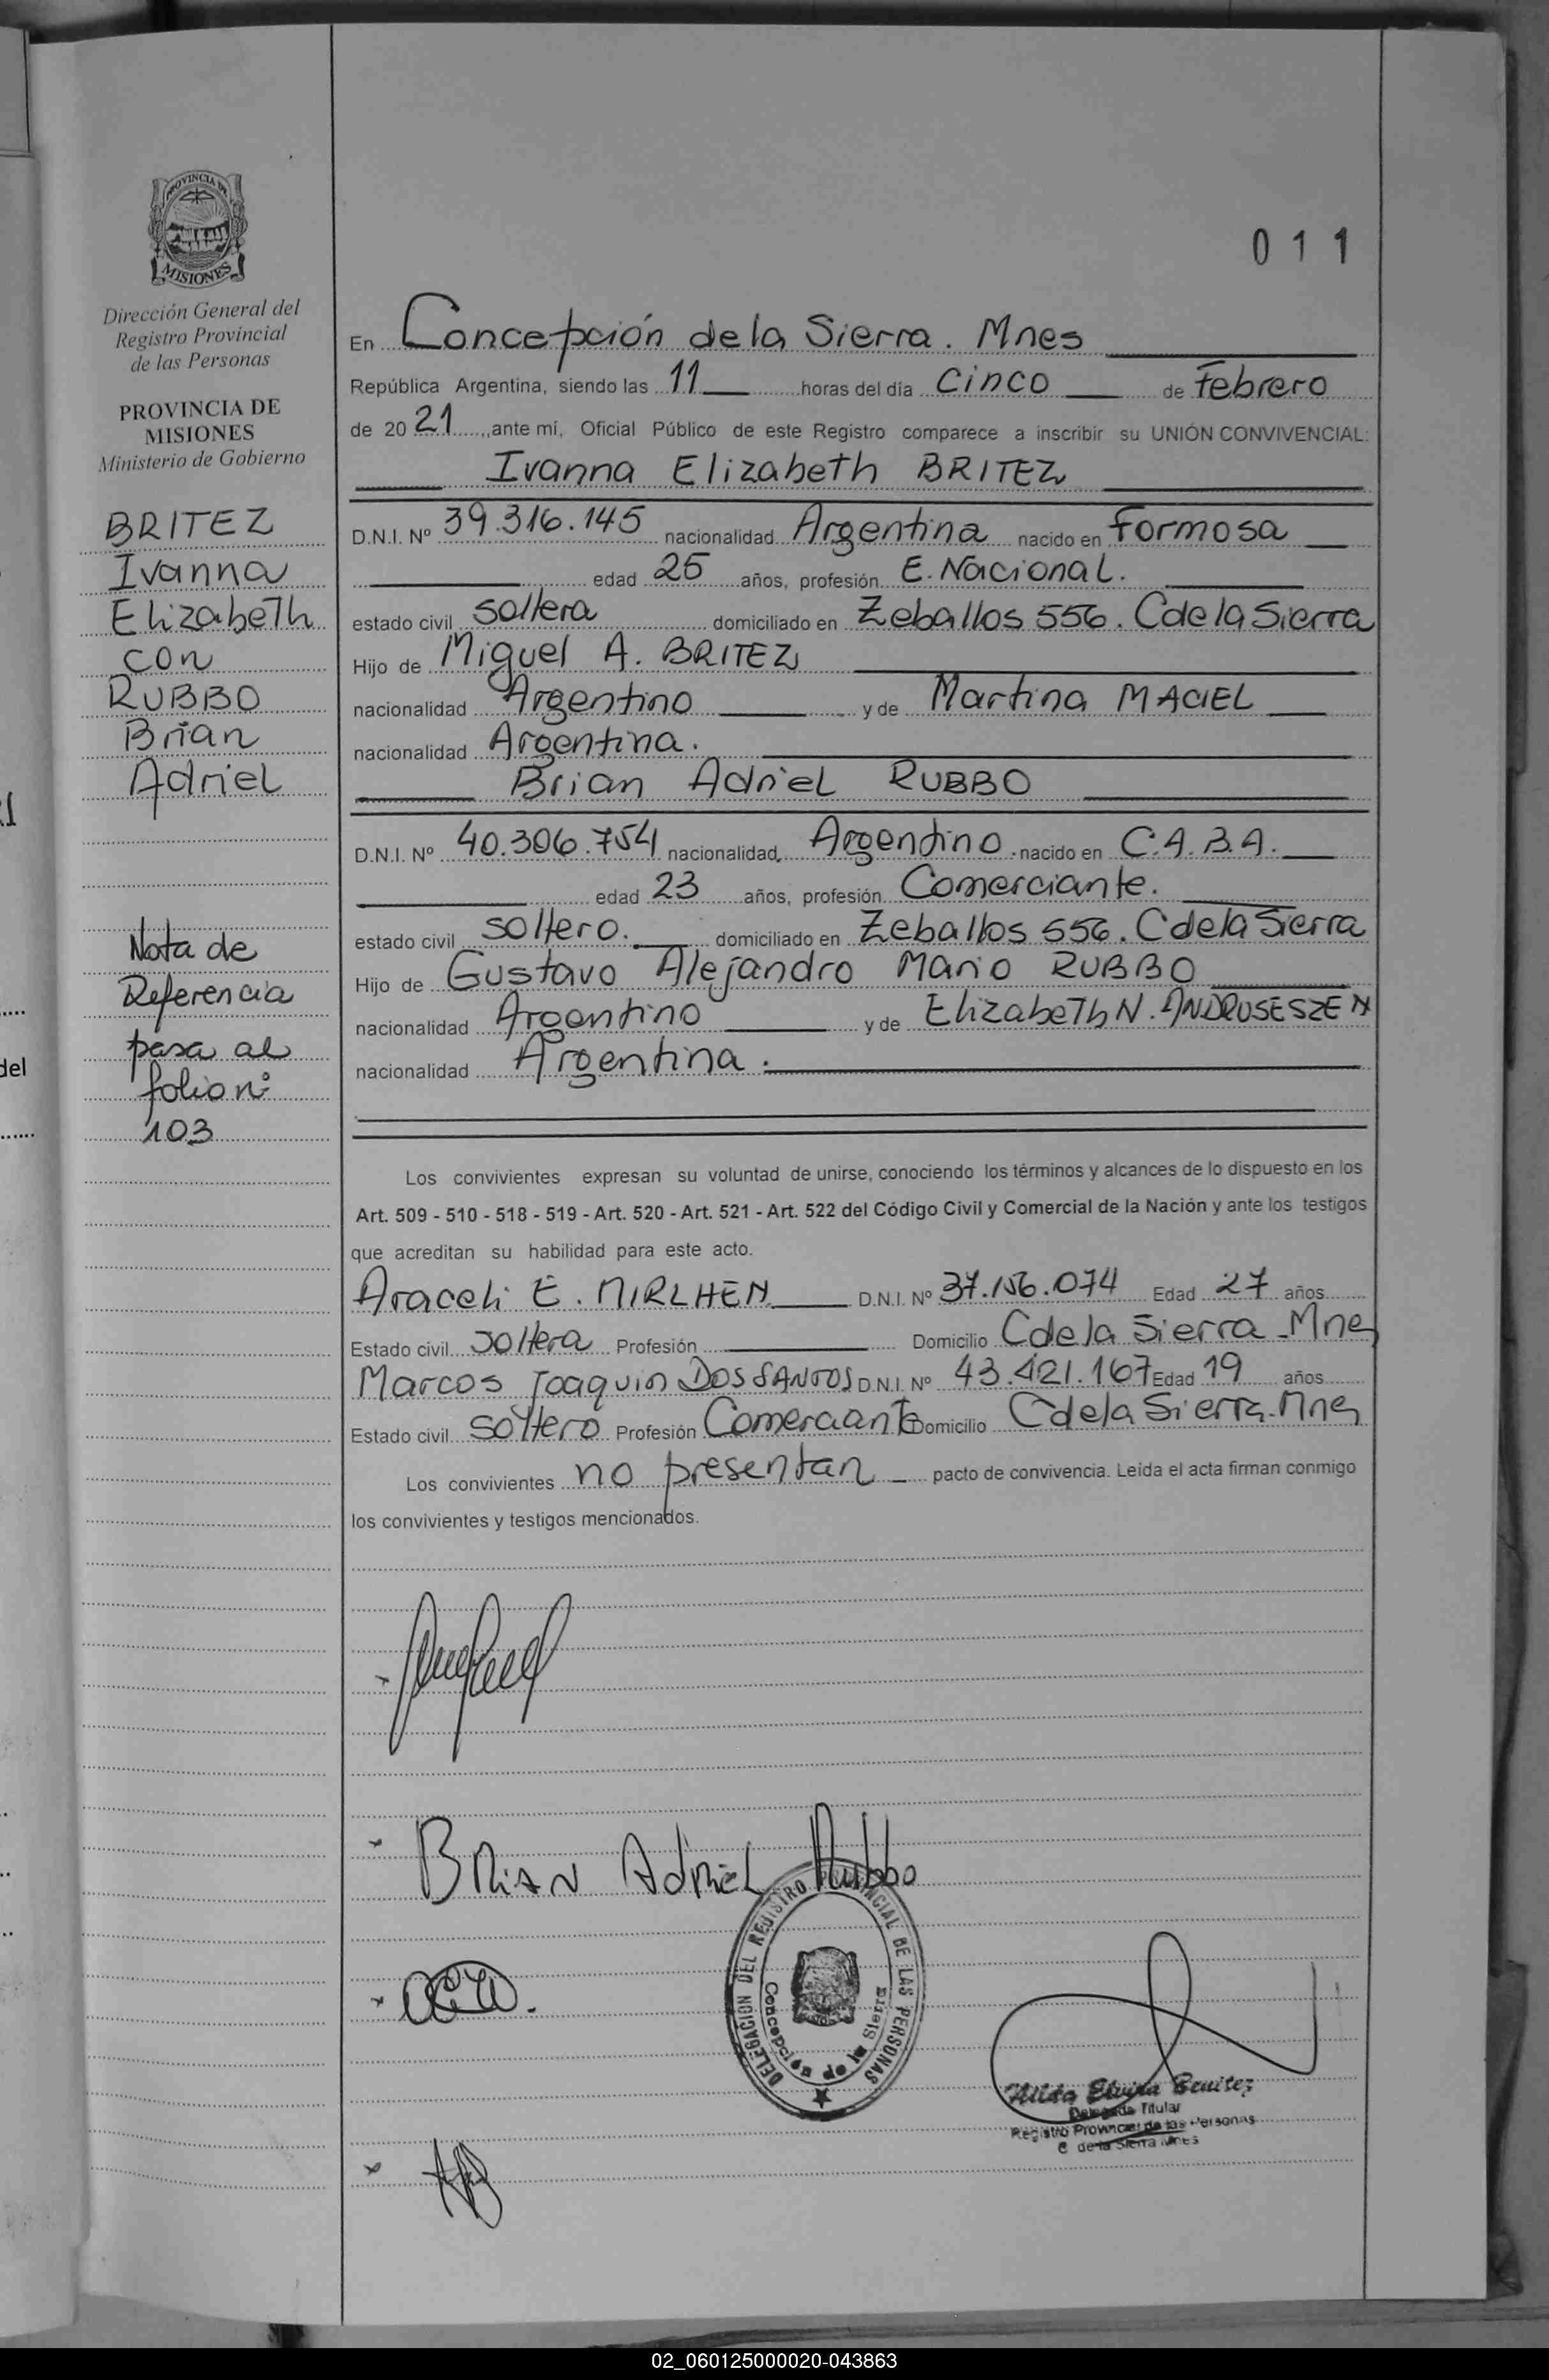 PROVINCIA DE
MISIONES
Dirección General del
Registro Provincial
de las Personas
PROVINCIA DE
MISIONES
Ministerio de Gobierno
BRITEZ
Ivanna
Elizabeth
con
RUBBO
Brian
Adriel
Nota de
Referencia
pasa al
folio nº
103
del
011
En Concepción de la Sierra. Mnes
República Argentina, siendo las 11 horas del día cinco de Febrero
de 2021, ante mí, Oficial Público de este Registro comparece a inscribir su UNIÓN CONVIVENCIAL:
Ivanna Elizabeth BRITEZ
D.N.I. Nº 39.316.145 nacionalidad Argentina nacido en Formosa
edad 25 años, profesión E. Nacional.
estado civil soltera domiciliado en Zeballos 556. C de la Sierra
Hijo de Miguel A. BRITEZ
nacionalidad Argentino y de Martina MACIEL
nacionalidad Argentina.
Brian Adriel RUBBO
D.N.I. Nº 40.306.754 nacionalidad Argentino nacido en C.A.B.A.
edad 23 años, profesión Comerciante.
estado civil soltero. domiciliado en Zeballos 556. C de la Sierra
Hijo de Gustavo Alejandro Mario RUBBO
nacionalidad Argentino y de Elizabeth N. ANDRUSESZEN
nacionalidad Argentina.
Los convivientes expresan su voluntad de unirse, conociendo los términos y alcances de lo dispuesto en los
Art. 509 - 510 - 518 - 519 - Art. 520 - Art. 521 - Art. 522 del Código Civil y Comercial de la Nación y ante los testigos
que acreditan su habilidad para este acto.
Araceli E. MIRLHEN D.N.I. Nº 37.156.074 Edad 27 años
Estado civil soltera Profesión Domicilio C de la Sierra - Mnes
Marcos Joaquin DOS SANTOS D.N.I. Nº 43.421.167 Edad 19 años
Estado civil soltero Profesión Comerciante Domicilio C de la Sierra - Mnes
Los convivientes no presentan pacto de convivencia. Leída el acta firman conmigo
los convivientes y testigos mencionados.
Brian Adriel Rubbo
DELEGACION DEL REGISTRO PROVINCIAL DE LAS PERSONAS
Concepción de la Sierra
Alida Elvira Benitez
Delegada Titular
Registro Provincial de las Personas
C de la Sierra Mnes
02_060125000020-043863